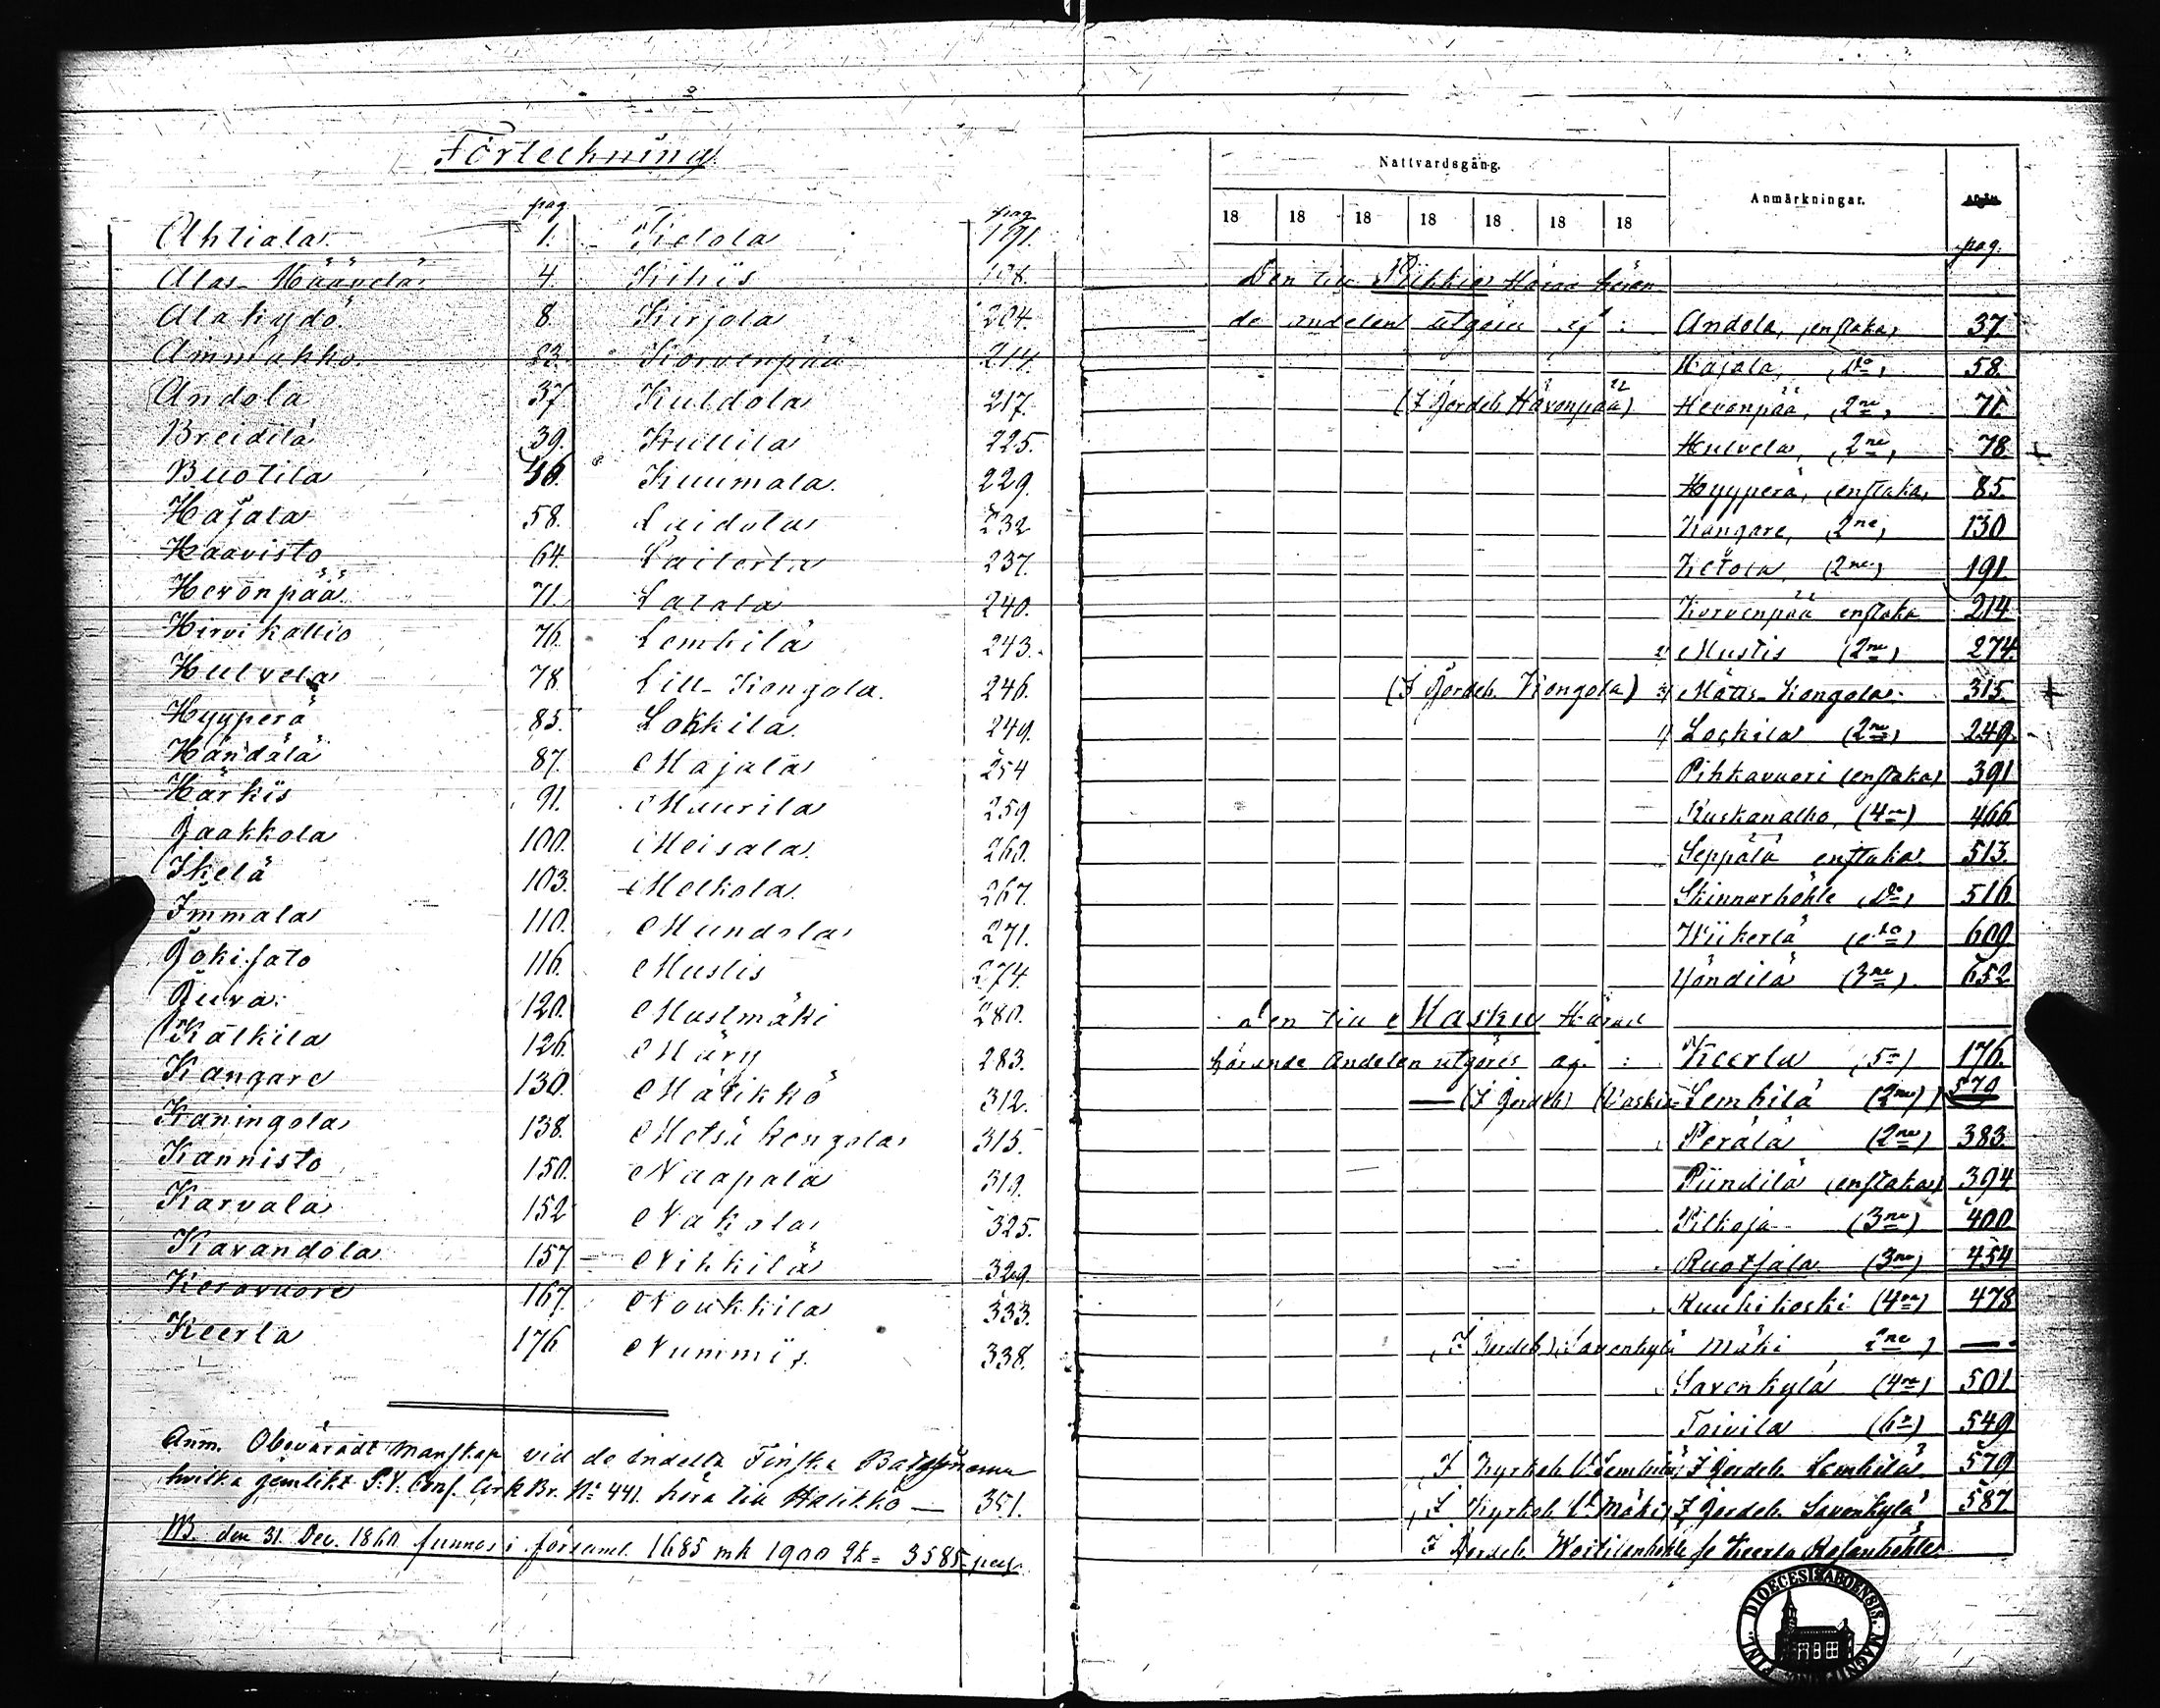 Förteckning
pag. pag.
Ahtiala 1. Ketola 191.
Alas-Häävelä 4. Kihis 198.
Alakydö 8. Kirjola 204.
Ammakko 23. Korvenpää 214.
Andola 37. Kuldola 217.
Breidilä 39. Kullila 225.
Buotila 46. Kuumola. 229.
Hajala 58. Laidola 232
Haavisto 64. Lailerla 237.
Hevonpää 71. Lalala 240.
Hirvikallio 76. Lemhilä 243.
Hulvela 78. Lill-Kongola. 246.
Hyyperä 85. Lokkila. 249.
Händälä 87. Majala 254
Härkis 91. Maurila 259
Jaakkola 100. Meisala. 260.
Ikelä 103. Melkola. 267.
Immala 110. Mundola 271.
Jokisato 116. Mustis 274.
Juva. 120. Mustmäki 280.
Kalkila 126. Märy 283.
Kangare 130. Märikkö 312.
Kaningola 138. Metsä Kongola 315.
Kannisto 150. Naapala 319.
Karvala 152 Nakola 325.
Kavandola 157 Nihkilä 329
Keravuore 167. Noukkila 333.
Keerla 176 Nummis. 338.
Anm. Obeväradt Manskap vid de indelta Finska Bataljonerna
hvilka jemlikt Cirk Br. No 441. höra till Halikko — 351.
NB. den 31. Dec. 1860 funnos i församl. 1685 mk 1900 qk = 3585 pers.
Nattvardsgång. Anmärkningar.
18 18 18 18 18 18 18 pag.
Den till Piikkis Härad hören
de andelen utgöra af: Andola, enstaka, 37
Hajala, Do, 58.
(I Jordeb. Hävonpää) Hevonpää, 2ne, 71.
Hulvela, 2ne, 78.
Hyyperä, enstaka, 85.
Kangare, 2ne, 130
Ketola (2ne) 191.
Korvenpää enstaka 214.
2) Mustis (2ne) 274.
(I Jordeb. Kongola) 3) Mätts-Kongola. 315.
1) Lockila (2ne) 249.
Pihkavuori (enstaka) 391
Ruskanalho, (4ra) 466
Seppälä enstaka 513.
Skinnarböhle (Do) 516
Wiikerlä (Do) 609.
Yöndilä (3ne). 652
Den till Masku Härad
hörande Andelen utgöres af: Keerla (5m) 176.
— (I Jordeb) (Vaskis- Lemhilä (2ne)) 579
Perälä (2ne) 383.
Piindilä (enstaka) 394
Pilkoja (3ne) 400
Ruotsala (3ne) 454
Ruuhikoski (4ra) 478
(I Jordeb) Savenkylä Mäki 2ne) —
Savenkylä (4ra) 501.
Toivila (6a) 549
I Kyrkob. Lemhilä, I Jordeb. Lemhilä. 579
I Kyrkob. Mäki, I Jordeb. Savenkylä 587.
I Jordeb. Wortilanböhle se Keerla Rosanböhle.
DIOECESIS ABOENSIS. MAGNI FINL.